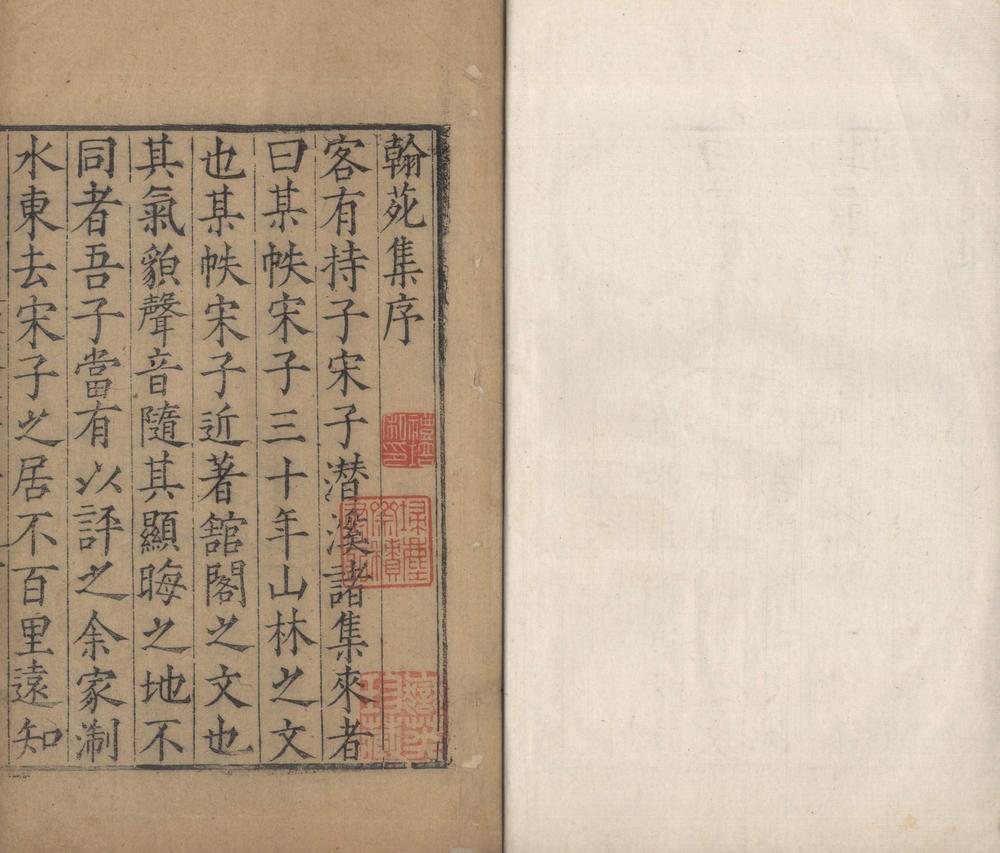 翰苑集序
客有持子宋子潛溪諸集來者
曰某帙宋子三十年山林之文
也某帙宋子近著舘閣之文也
其氣貌聲音隨其顯晦之地不
同者吾子當有以評之余家淛
水東去宋子之居不百里遠知